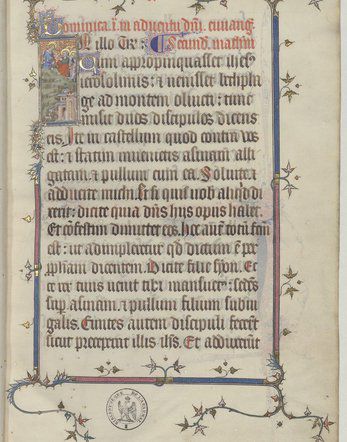 Dominica i. in adventu dñi. euuang.
In illo tr̃e. Secund. matheū
Cum appropinquasset ihesus
ierosolimis: & uenisset bethpha
ge ad montem oliueti: tunc
misit duos discipulos dicens
eis. Ite in castellum quod contra uos
est: & statim inuenietis asinam alli
gatam & pullum cum ea. Soluite &
adducite michi. Et si quis uob aliqđ di
xerit: dicite quia dñs hijs opus habet.
Et cōfestim dimittet eos. hec aut totū factū
est: ut adimpleretur qđ dictum ē per
pphām dicentem. Dicite filie syon. Ec
ce rex tuus uenit tibi mansuetus: sedēs
sup asinam & pullum filium subiu
galis. Euntes autem discipuli fecerūt
sicut precepit illis ihs. Et adduxerūt